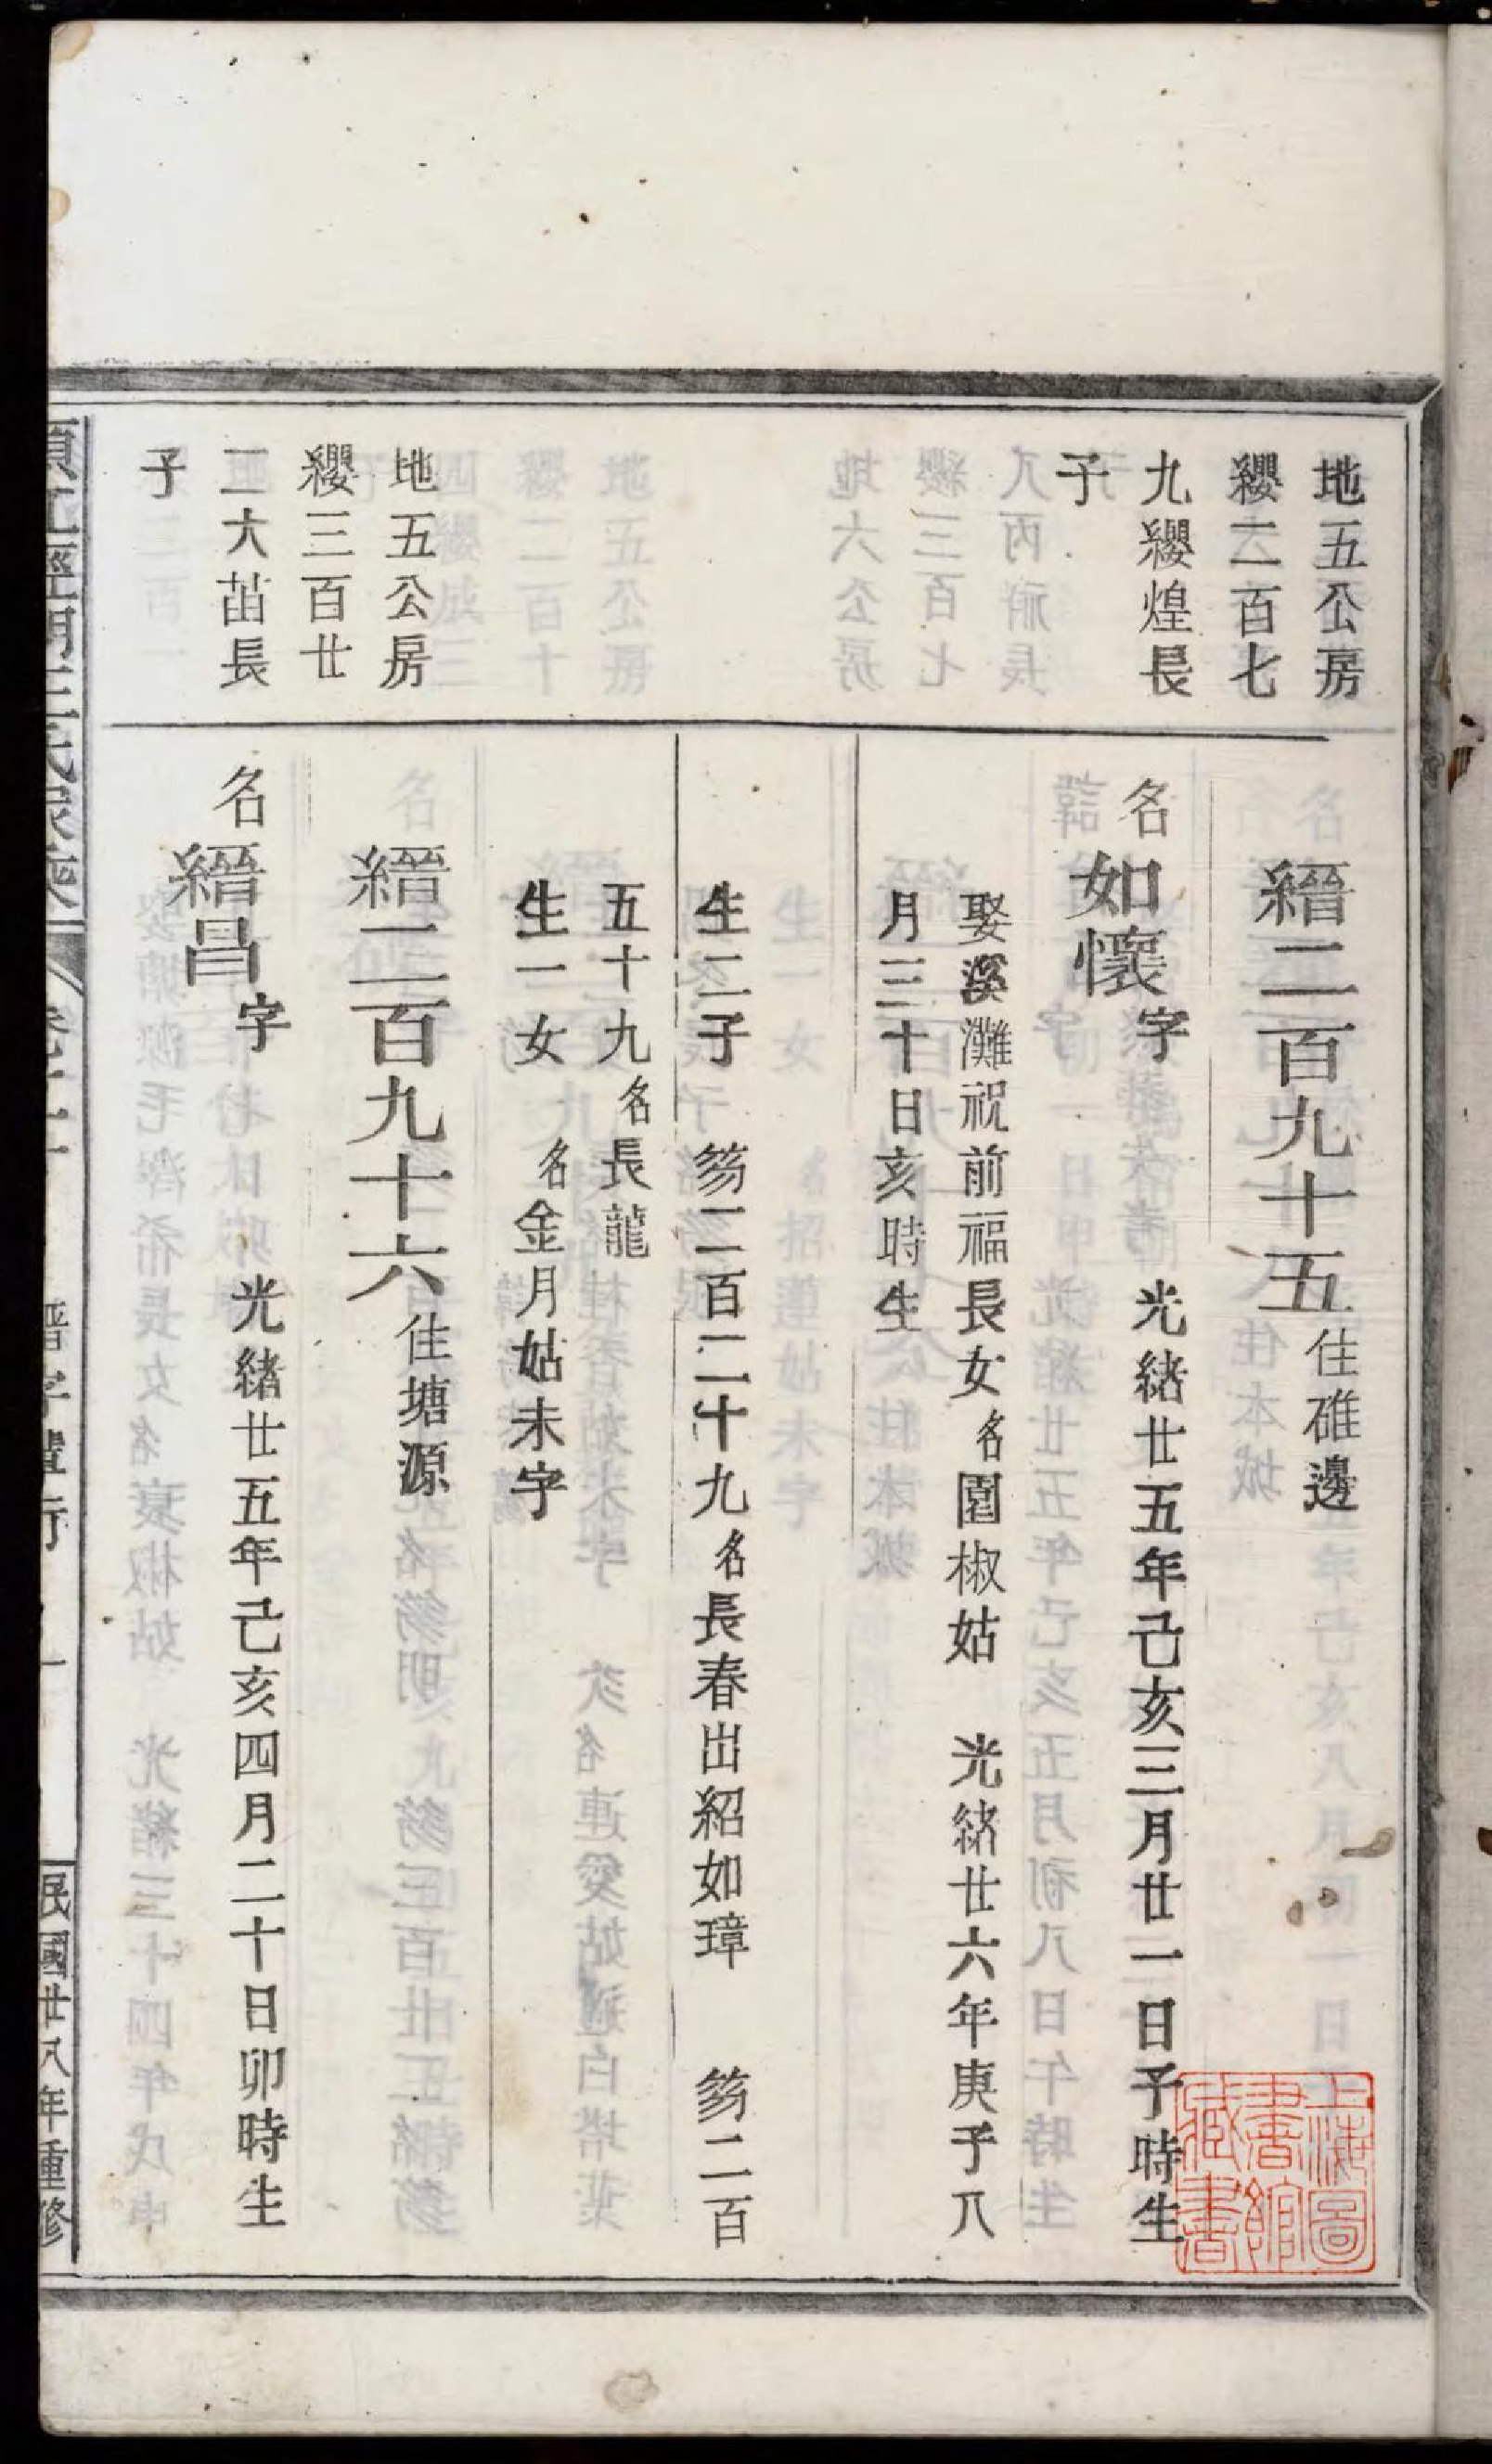 地五公房
纓二百七
九纓煌長
子
縉二百九十五住碓邊
名如懷字 光緒廿五年己亥三月廿一日子時生
娶溪灘祝前福長女名園椒姑 光緒廿六年庚子八
月三十日亥時生
生二子 笏二百二十九名長春出紹如璋 笏二百
五十九名長龍
生一女 名金月姑未字
地五公房
纓三百廿
一大苗長
子
縉二百九十六住塘源
名縉昌字 光緒廿五年己亥四月二十日卯時生
民國廿八年重修
上海圖
書館
藏書